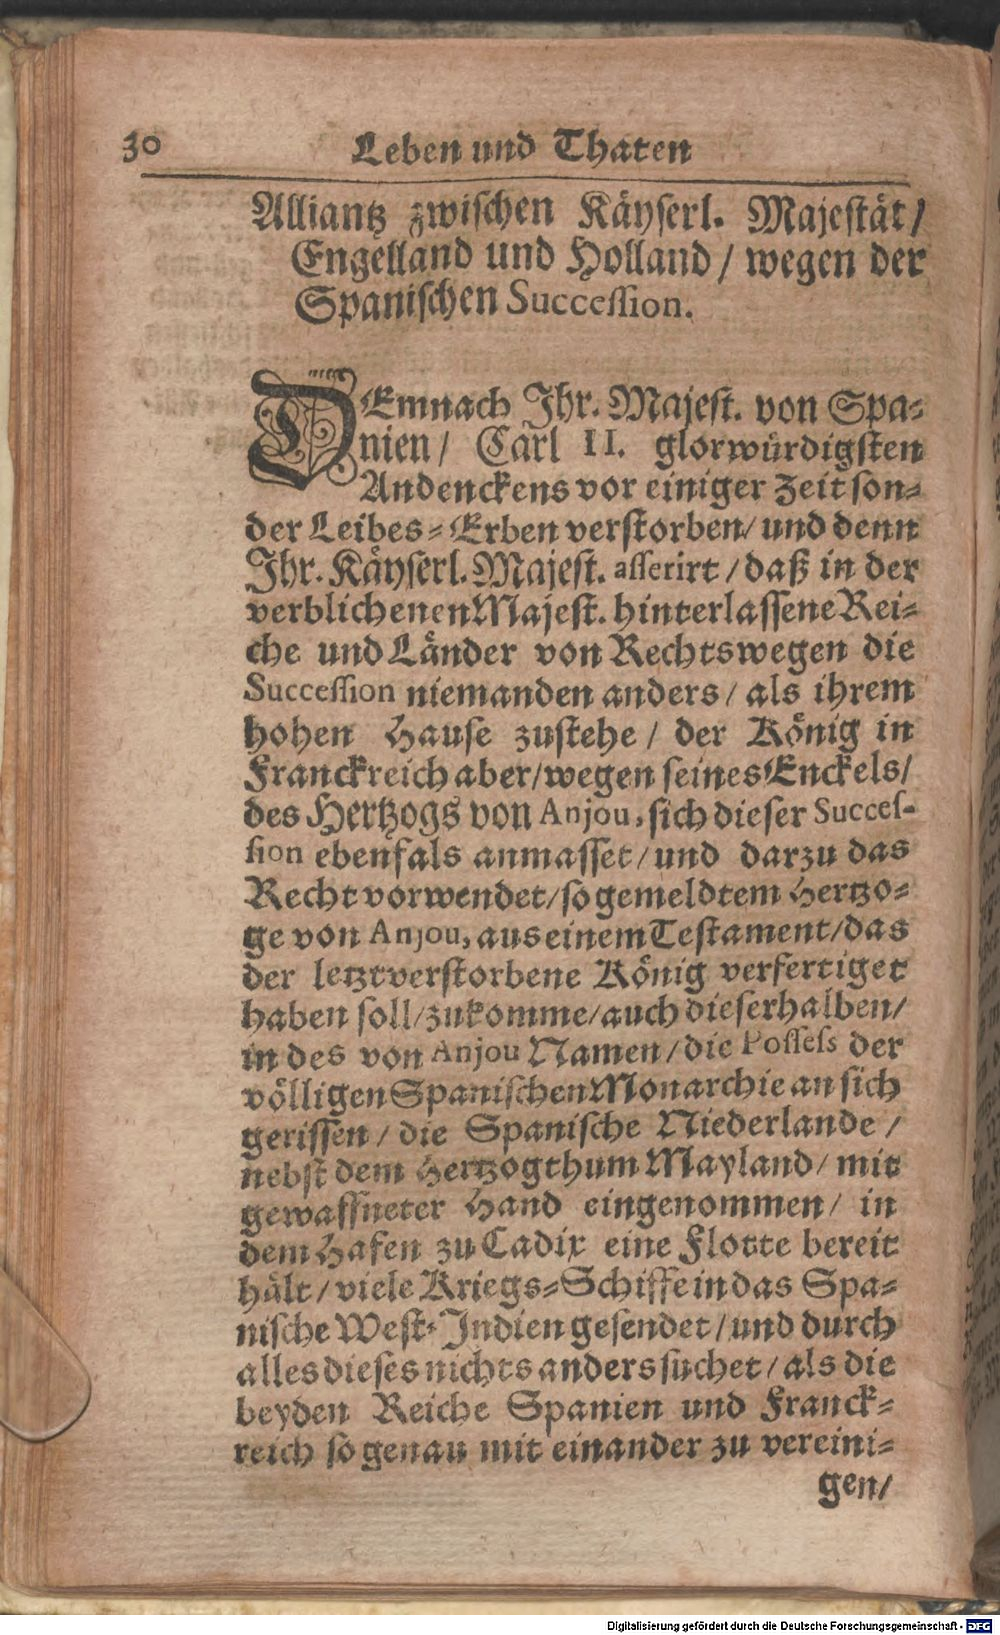 30 Leben und Thaten
Alliantz zwischen Käyserl. Majestät/
Engelland und Holland / wegen der
Spanischen Succession.
DEmnach Ihr. Majest. von Spa-
nien/ Carl II. glorwürdigsten
Andenckens vor einiger Zeit son-
der Leibes-Erben verstorben/ und denn
Ihr. Käyserl. Majest. asserirt / daß in der
verblichenen Majest. hinterlassene Rei-
che und Länder von Rechtswegen die
Succession niemanden anders / als ihrem
hohen Hause zustehe / der König in
Franckreich aber/wegen seines Enckels/
des Hertzogs von Anjou, sich dieser Succes-
sion ebenfals anmasset/und darzu das
Recht vorwendet/so gemeldtem Hertzo-
ge von Anjou, aus einem Testament/das
der letztverstorbene König verfertiget
haben soll/zukomme/auch dieserhalben/
in des von Anjou Namen/die Possess der
völligen Spanischen Monarchie an sich
gerissen / die Spanische Niederlande /
nebst dem Hertzogthum Mayland/ mit
gewaffneter Hand eingenommen/ in
dem Hafen zu Cadix eine Flotte bereit
hält / viele Kriegs-Schiffe in das Spa-
nische West-Indien gesendet/und durch
alles dieses nichts anders suchet/ als die
beyden Reiche Spanien und Franck-
reich so genau mit einander zu vereini-
gen/
Digitalisierung gefördert durch die Deutsche Forschungsgemeinschaft - DFG